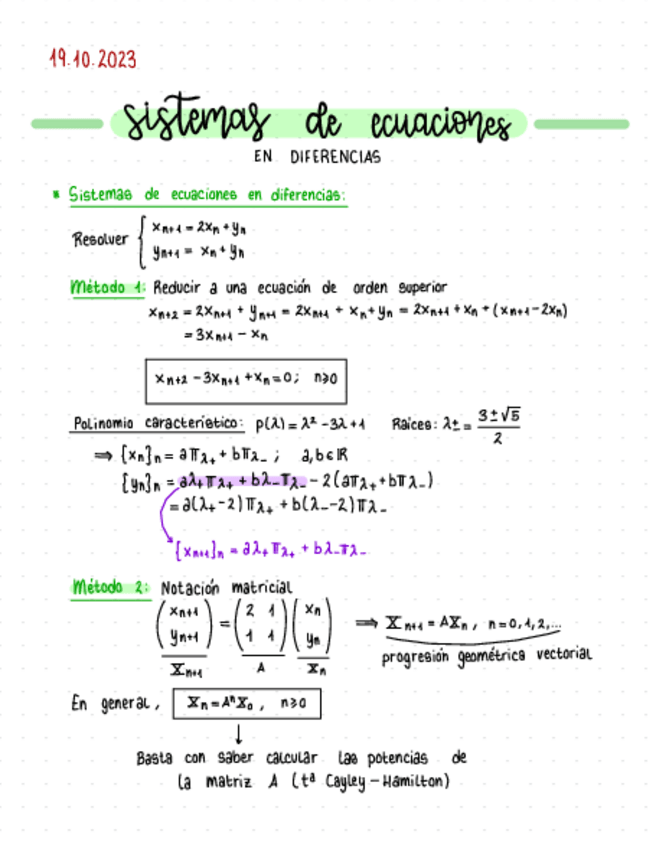 19.10.2023
sistemas de ecuaciones
EN DIFERENCIAS
* Sistemas de ecuaciones en diferencias:
Resolver { xₙ₊₁ = 2xₙ + yₙ
yₙ₊₁ = xₙ + yₙ
Método 1: Reducir a una ecuación de orden superior
xₙ₊₂ = 2xₙ₊₁ + yₙ₊₁ = 2xₙ₊₁ + xₙ + yₙ = 2xₙ₊₁ + xₙ + (xₙ₊₁ - 2xₙ)
= 3xₙ₊₁ - xₙ
xₙ₊₂ - 3xₙ₊₁ + xₙ = 0; n≥0
Polinomio característico: p(λ) = λ² - 3λ + 1 Raíces: λ± = (3 ± √5)/2
⇒ {xₙ}ₙ = aπλ₊ + bπλ₋ ; a, b ∈ ℝ
{yₙ}ₙ = aλ₊πλ₊ + bλ₋πλ₋ - 2(aπλ₊ + bπλ₋)
= a(λ₊ - 2)πλ₊ + b(λ₋ - 2)πλ₋
{xₙ₊₁}ₙ = aλ₊πλ₊ + bλ₋πλ₋
Método 2: Notación matricial
(xₙ₊₁ yₙ₊₁) = (2 1 1 1) (xₙ yₙ) ⇒ Xₙ₊₁ = AXₙ, n = 0, 1, 2, ...
Xₙ₊₁ A Xₙ
progresión geométrica vectorial
En general, Xₙ = AⁿX₀, n≥0
↓
Basta con saber calcular las potencias de
la matriz A (tª Cayley-Hamilton)